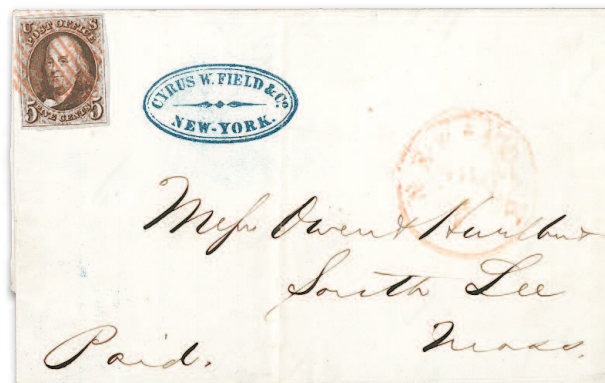 U S
POST OFFICE
5 FIVE CENTS 5
CYRUS W. FIELD & Co
NEW-YORK.
NEW-YORK
Mess Owen & Hurlbut
South Lee
Mass.
Paid.